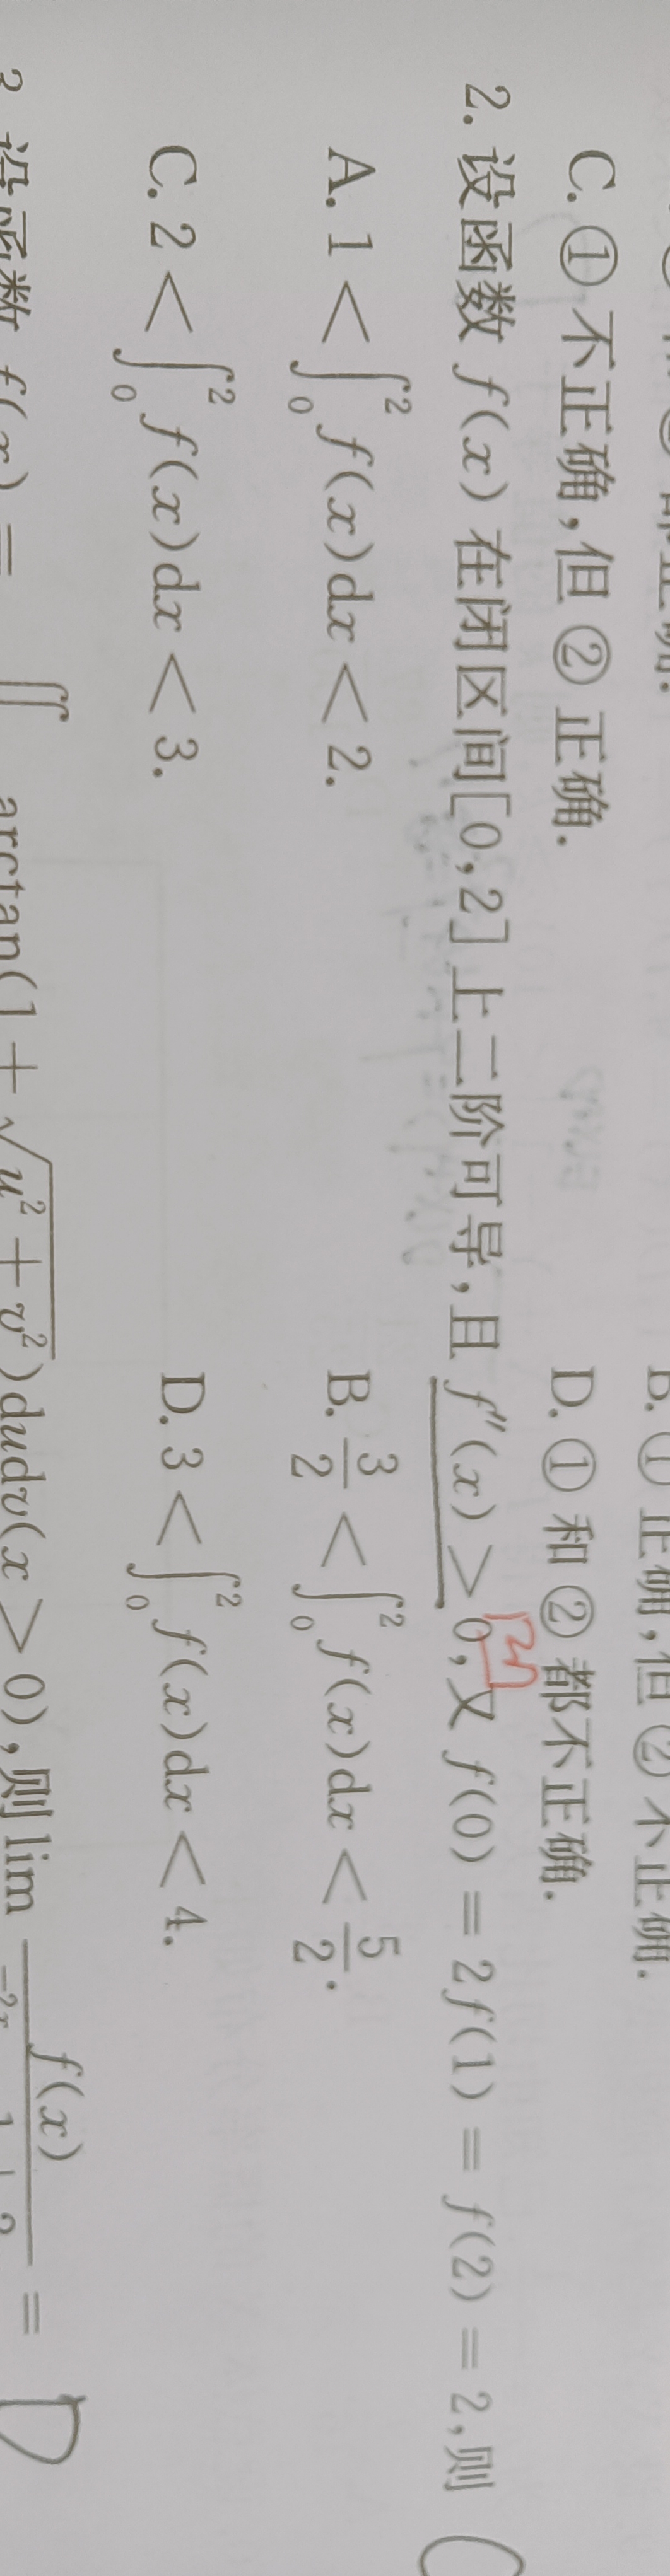 B. ① 正确,但 ② 不正确.
C. ① 不正确,但 ② 正确. D. ① 和 ② 都不正确.
2. 设函数 f(x) 在闭区间[0,2] 上二阶可导,且 f″(x) > 0,又 f(0) = 2f(1) = f(2) = 2,则
A. 1 < ∫₀² f(x)dx < 2. B. 3/2 < ∫₀² f(x)dx < 5/2.
C. 2 < ∫₀² f(x)dx < 3. D. 3 < ∫₀² f(x)dx < 4.
设函数 f(x) = ∬ arctan(1 + √(u² + v²))dudv(x > 0),则 lim f(x) = D